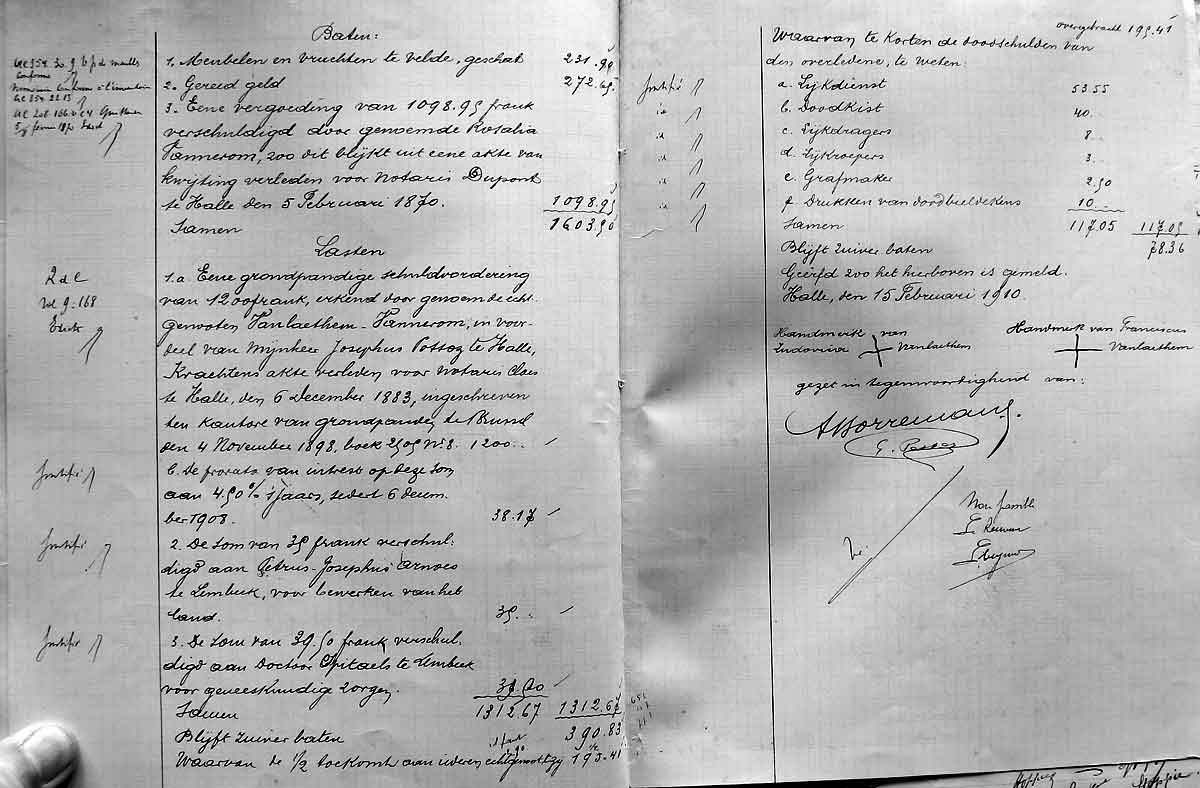 Baten:
1. Meubelen en vruchten te velde, geschat 231.95
2. Gereed geld 272.65
3. Eene vergoeding van 1098.95 frank
verschuldigd door genoemde Rosalia
Vannerom, zoo dit blijkt uit eene akte van
kwijting verleden voor Notaris Dupont
te Halle den 5 Februari 1870. 1098.95
Samen 1603.50
Lasten
1.a. Eene grondpandige schuldvordering
van 1200 frank, erkend door genoemde echt-
genooten Vanlaethem-Vannerom, in voor-
deel van Mijnheer Josephus Possoz te Halle,
Krachtens akte verleden voor Notaris Claes
te Halle, den 6 December 1883, ingeschreven
ten kantore van grondpanden te Brussel
den 4 November 1898, boek 2505 N: 8. 1200..
b. De prorata van intrest op deze som
aan 4.50% 'sjaars, sedert 6 decem-
ber 1908. 38.17
2. De som van 35 frank verschul-
digd aan Petrus-Josephus Arnoes
te Lembeek, voor bewerken van het
land. 35..
3. De som van 39.50 frank verschul-
digd aan Doctoor Spitaels te Lembeek
voor geneeskundige zorgen. 39.50
Samen 1312.67 1312.67
Blijft zuiver baten 390.83
Waarvan de 1/2 toekomt aan iederen echtgenoot zij 195.41
conforme
Rdl
Vol 9.168
Justifié
Justifié
Justifié
overgebracht 195.41
Waarvan te korten de doodschulden van
den overledene, te weten:
Justifié
a. Lijkdienst 53.55
id b. Doodkist 40..
id c. Lijkdragers 8..
id d. Lijkroepers 3..
id e. Grafmaker 2.50
id f. Drukken van doodbeeldekens 10..
Samen 117.05 117.05
Blijft zuiver baten 78.36
Geërfd zoo het hierboven is gemeld.
Halle, den 15 Februari 1910.
Handmerk van
Ludovica Vanlaethem
Handmerk van Franciscus
Vanlaethem
gezet in tegenwoordigheid van:
ABorremans.